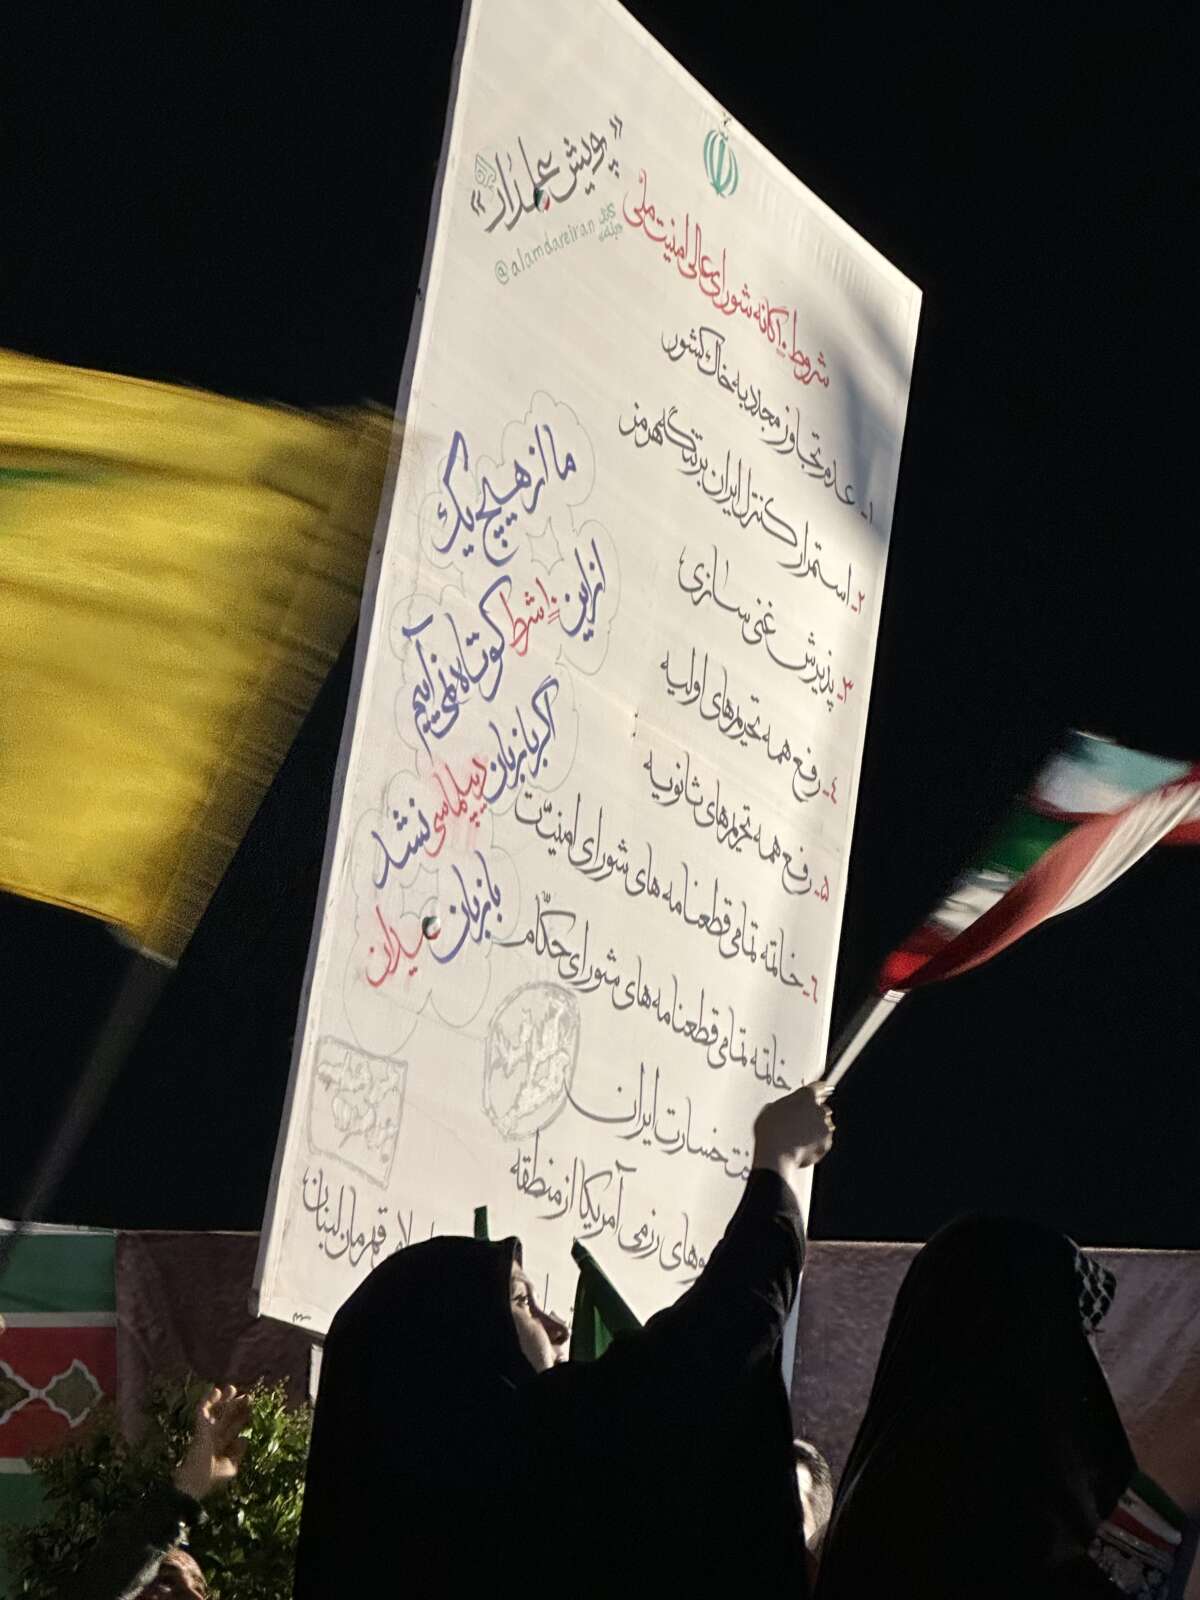 «پویش علمدار»
@alamdareiran
شروط ۱۰گانه شورای عالی امنیت ملی
۱- عدم تجاوز مجدد به خاک کشور
۲- استمرار کنترل ایران بر تنگه هرمز
۳- پذیرش غنی سازی
۴- رفع همه تحریم‌های اولیه
۵- رفع همه تحریم‌های ثانویه
۶- خاتمه تمامی قطعنامه های شورای امنیّت
خاتمه تمامی قطعنامه های شورای حکّام
خسارت ایران
رزمی آمریکا از منطقه
قهرمان لبنان
ما از هیچ یک
از این ۱۰ شرط
کوتاه نمی آییم
اگر با زبان
دیپلماسی نشد
با زبان میدان